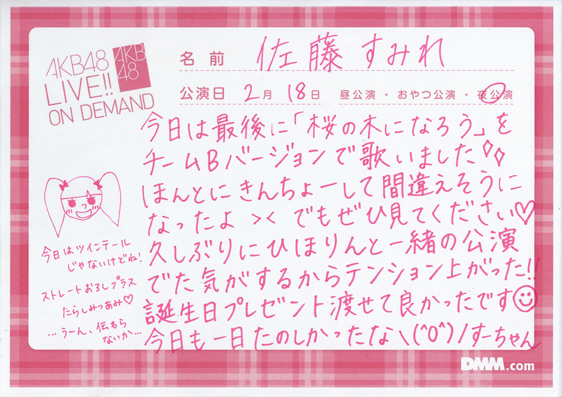 AKB48
LIVE!!
ON DEMAND
AKB
48
名前 佐藤すみれ
公演日 2月18日 昼公演・おやつ公演・夜公演
今日は最後に「桜の木になろう」を
チームBバージョンで歌いました
ほんとにきんちょーして間違えそうに
なったよ >< でもぜひ見てください♡
久しぶりにひほりんと一緒の公演
でた気がするからテンション上がった!!
誕生日プレゼント渡せて良かったです☺
今日も一日たのしかったな\(^O^)/すーちゃん
今日はツインテール
じゃないけどね!
ストレートおろしプラス
たらしみつあみ♡
…うーん、伝わら
ないか…
DMM.com